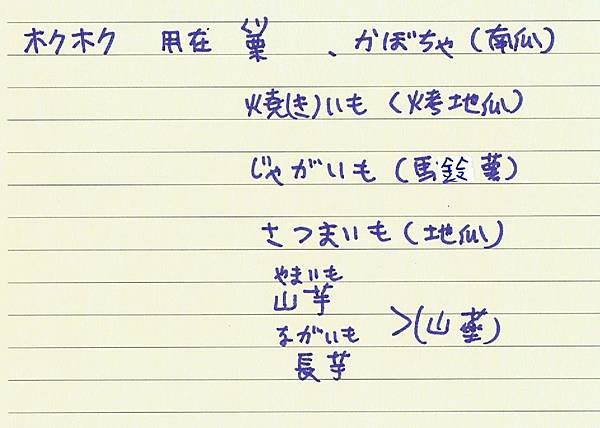 くり
ホクホク 用在 栗 、かぼちゃ(南瓜)
焼(き)いも (烤地瓜)
じゃがいも (馬鈴薯)
さつまいも(地瓜)
やまいも
山芋
ながいも >(山薯)
長芋